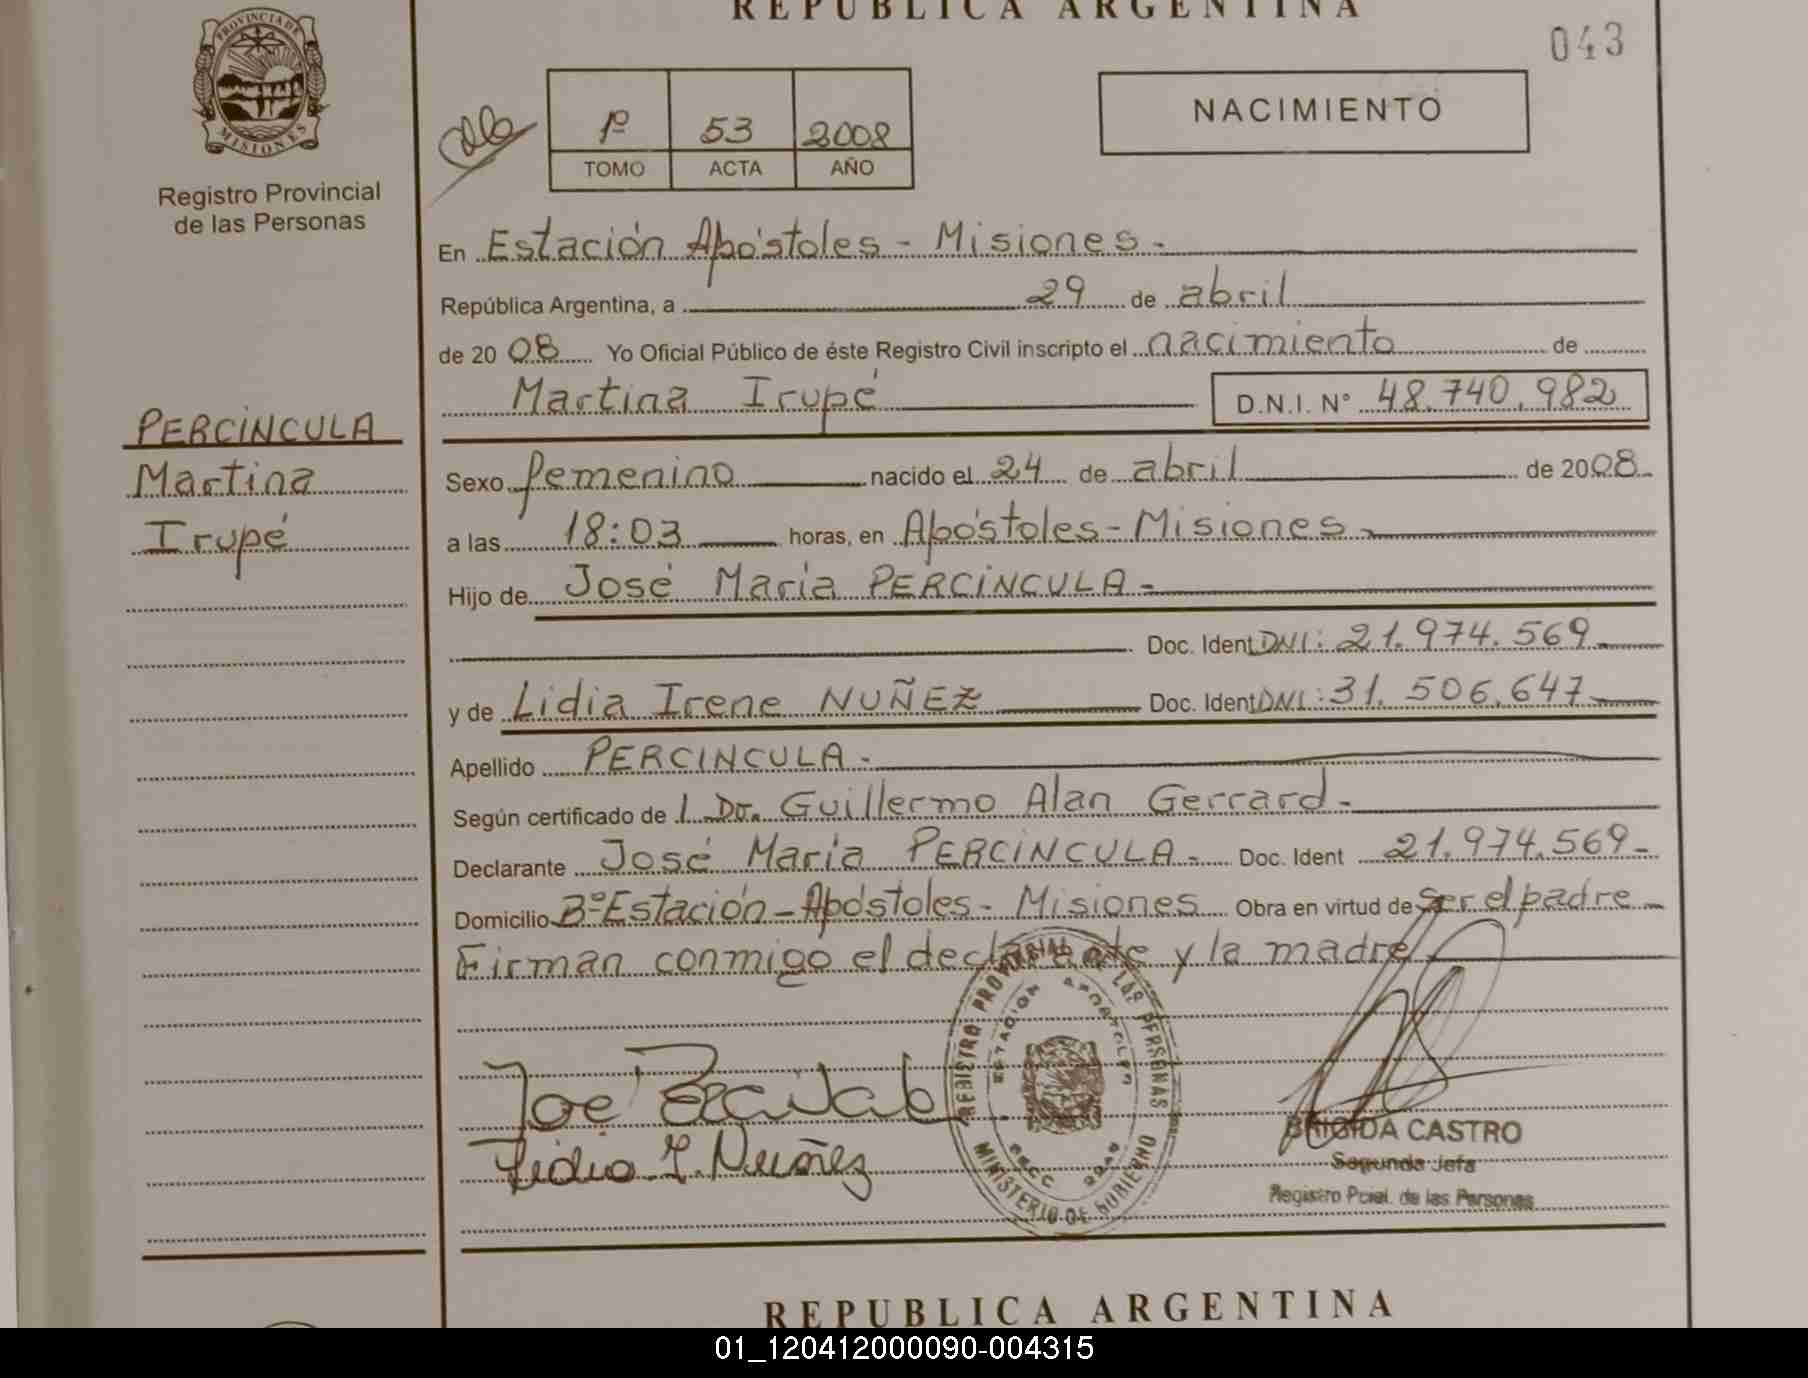 REPUBLICA ARGENTINA
043
PROVINCIA DE
MISIONES
Registro Provincial
de las Personas
1º 53 2008
TOMO ACTA AÑO
NACIMIENTO
En Estación Apóstoles - Misiones -
República Argentina, a 29 de abril
de 2008 Yo Oficial Público de éste Registro Civil inscripto el nacimiento de
Martina Irupé D.N.I. Nº 48.740.982
PERCINCULA
Martina
Irupé
Sexo femenino nacido el 24 de abril de 2008
a las 18:03 horas, en Apóstoles - Misiones
Hijo de José María PERCINCULA -
Doc. Ident DNI: 21.974.569
y de Lidia Irene NUÑEZ Doc. Ident DNI: 31.506.647
Apellido PERCINCULA -
Según certificado de 1. Dr. Guillermo Alan Gerrard -
Declarante José María PERCINCULA - Doc. Ident 21.974.569 -
Domicilio Bº Estación - Apóstoles - Misiones Obra en virtud de ser el padre
Firman conmigo el declarante y la madre
Lidia I. Nuñez
REGISTRO PROVINCIAL DE LAS PERSONAS
ESTACION APOSTOLES
MINISTERIO DE GOBIERNO
BRIGIDA CASTRO
Segunda Jefa
Registro Pciel. de las Personas
REPUBLICA ARGENTINA
01_120412000090-004315